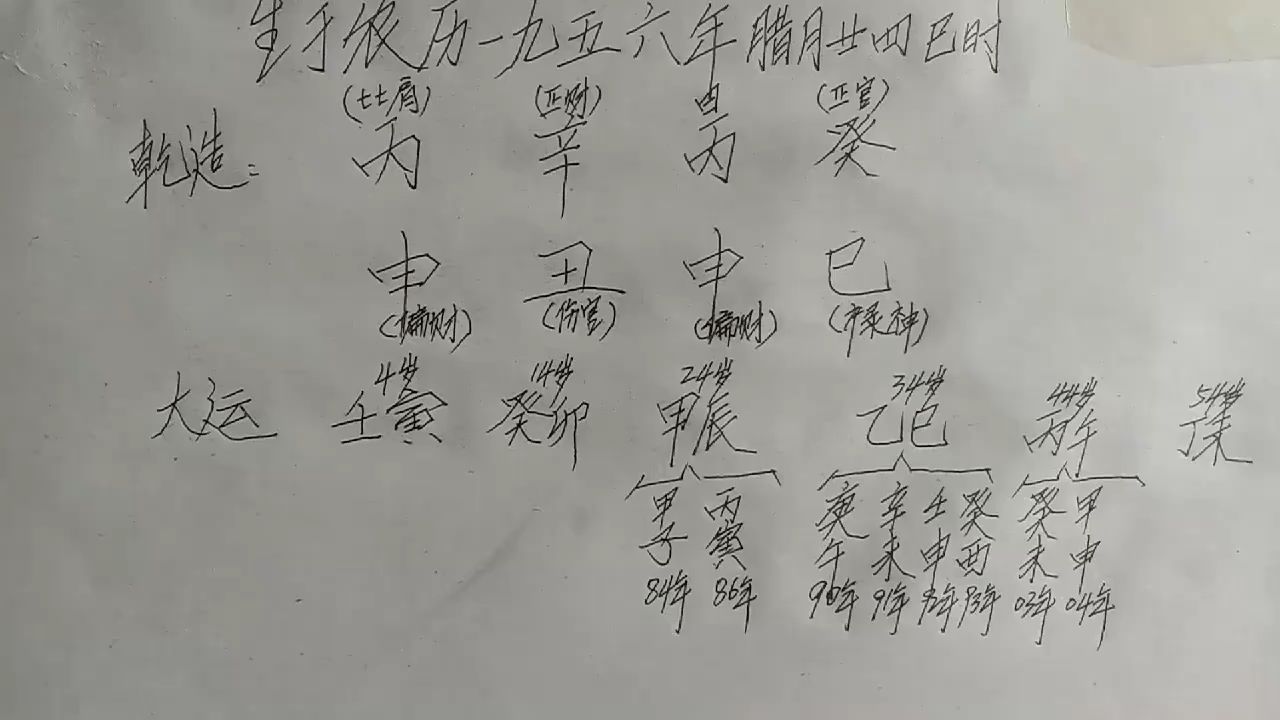 生于农历一九五六年腊月廿四巳时
(比肩) (正财) 日 (正官)
乾造: 丙 辛 丙 癸
申 丑 申 巳
(偏财) (伤官) (偏财) (禄神)
4岁 14岁 24岁 34岁 44岁 54岁
大运 壬寅 癸卯 甲辰 乙巳 丙午 丁未
甲 丙 庚 辛 壬 癸 癸 甲
子 寅 午 未 申 酉 未 申
84年 86年 90年 91年 92年 93年 03年 04年